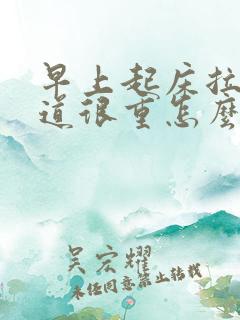 早上起床拉
道很重怎麽
吴宏耀
未经同意禁止转载